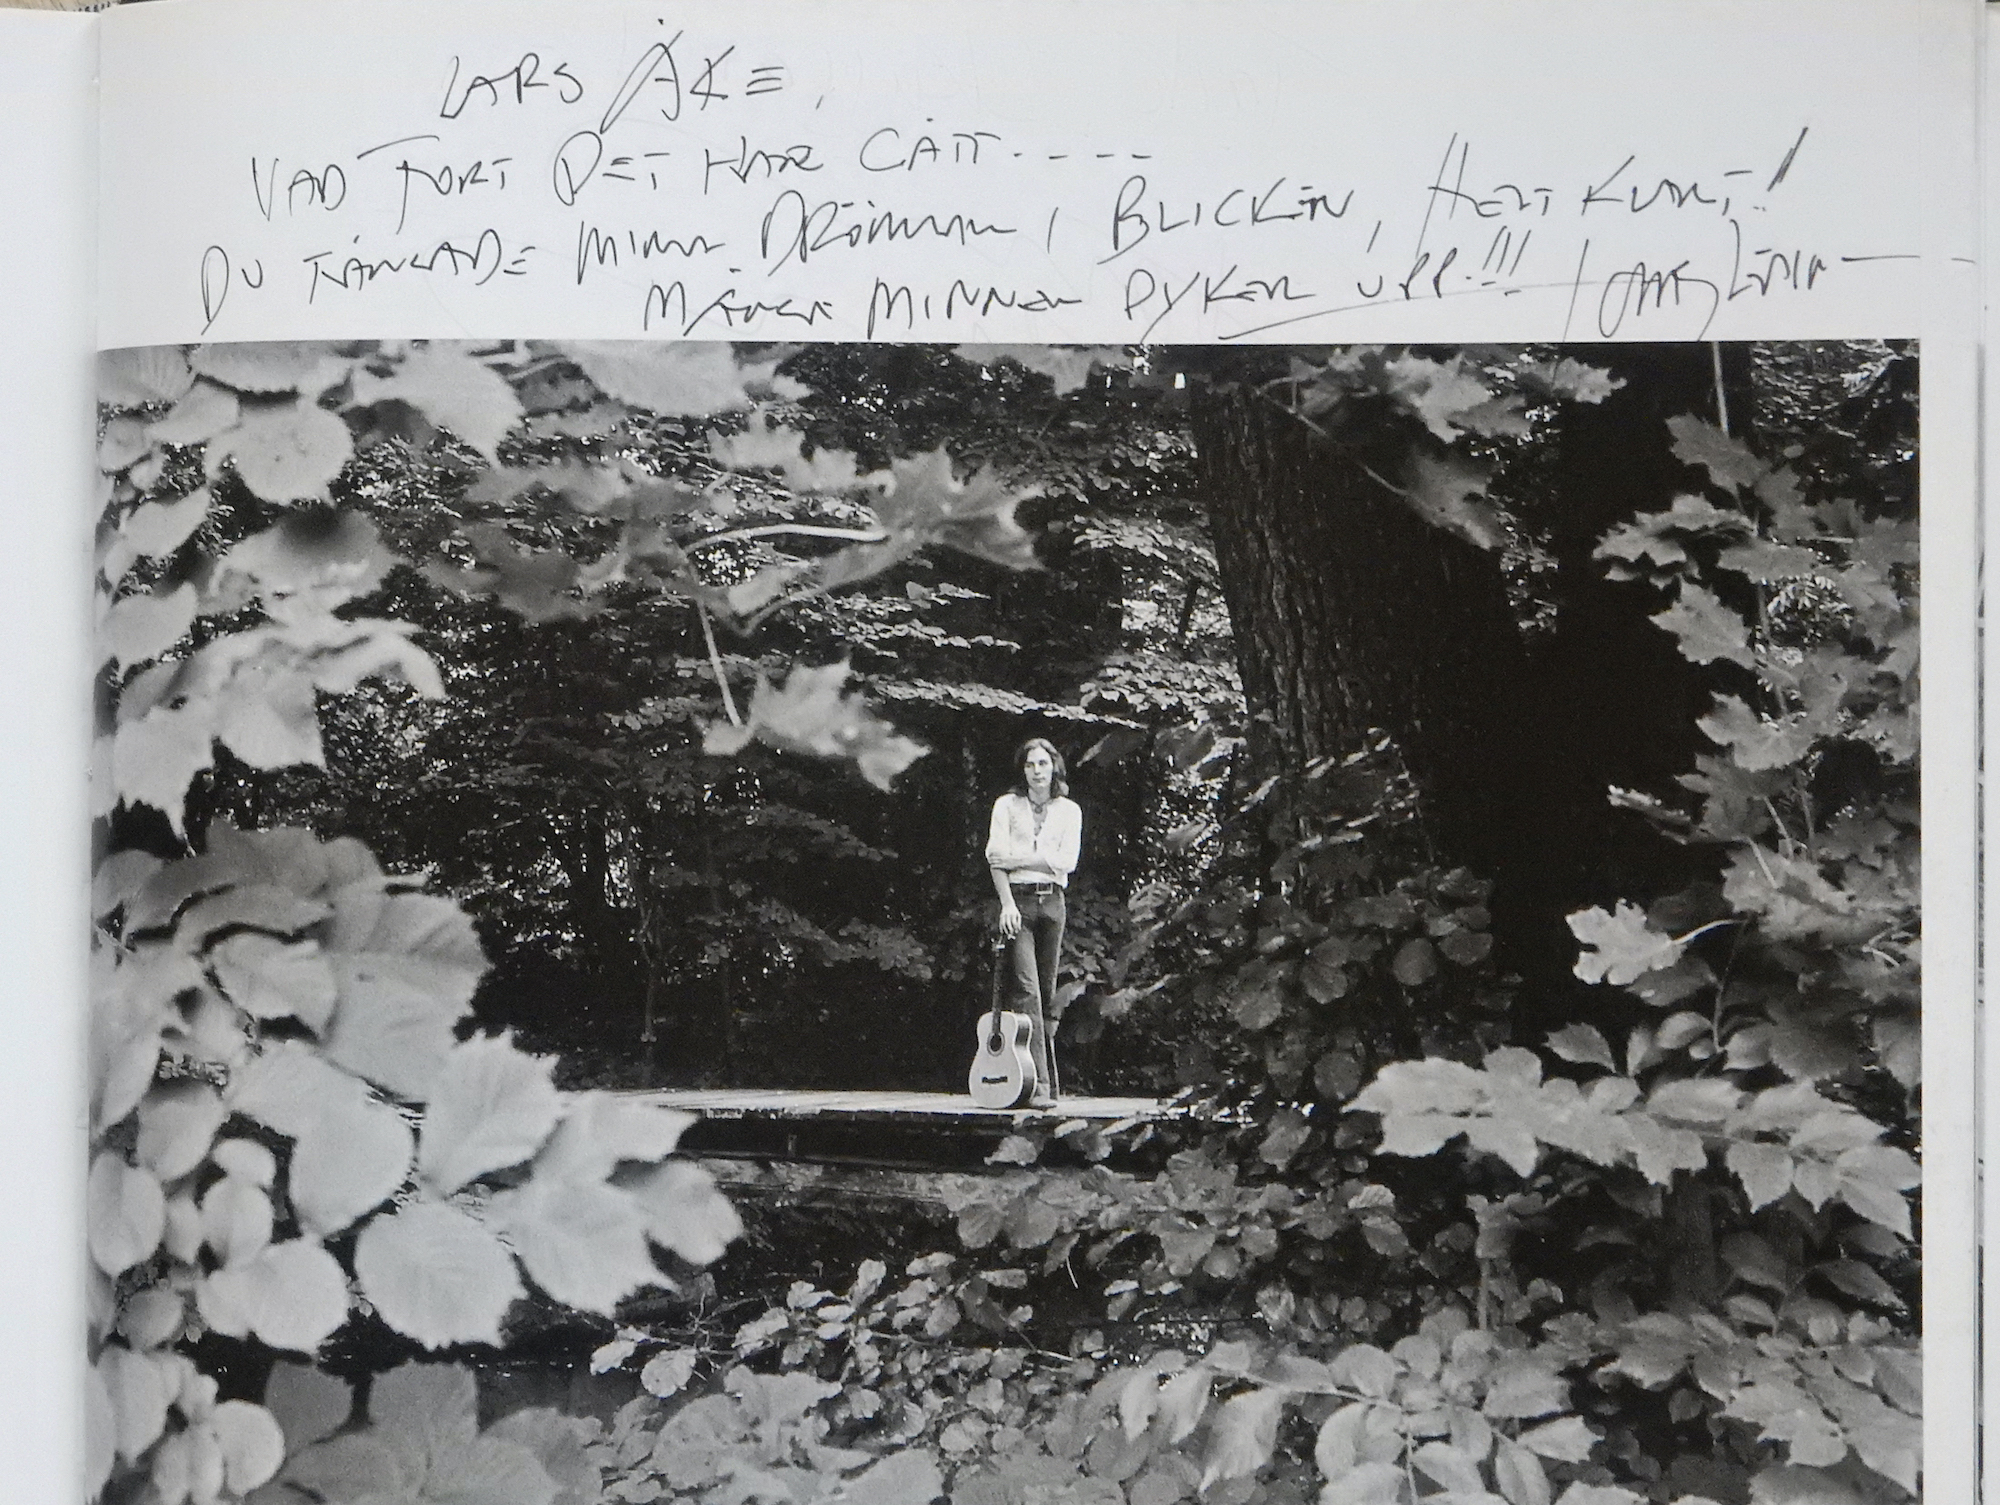 LARS ÅKE,
VAD FORT DET HAR GÅTT.----
DU FÅNGADE MINA DRÖMMAR I BLICKEN, HELT KLART!
MÅNGA MINNEN DYKER UPP!!! /